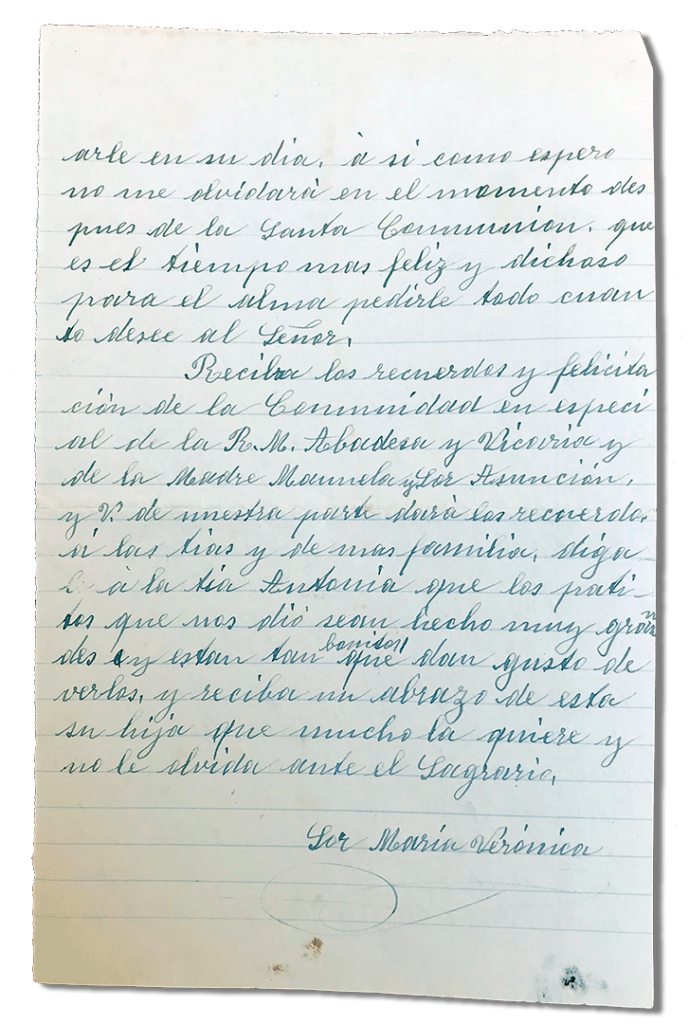 arle en su dia, à si como espero
no me olvidarà en el momento des
pues de la Santa Communion. que
es el tiempo mas feliz y dichoso
para el alma pedirle todo cuan
to desee al Señor.
Reciba los recuerdos y felicita
ción de la Comunidad en especi
al de la R.M. Abadesa y Vicaria y
de la Madre Manuela y Sor Asunción,
y V. de nuestra parte darà los recuerdos
à las tias y de mas familia, diga
le à la tia Antonia que los pati-
tos que nos diò sean hecho muy gran
des y estan tan bonitos que dan gusto de
verlos, y reciba un abrazo de esta
su hija que mucho la quiere y
no le olvida ante el Sagrario,
Sor María Verónica